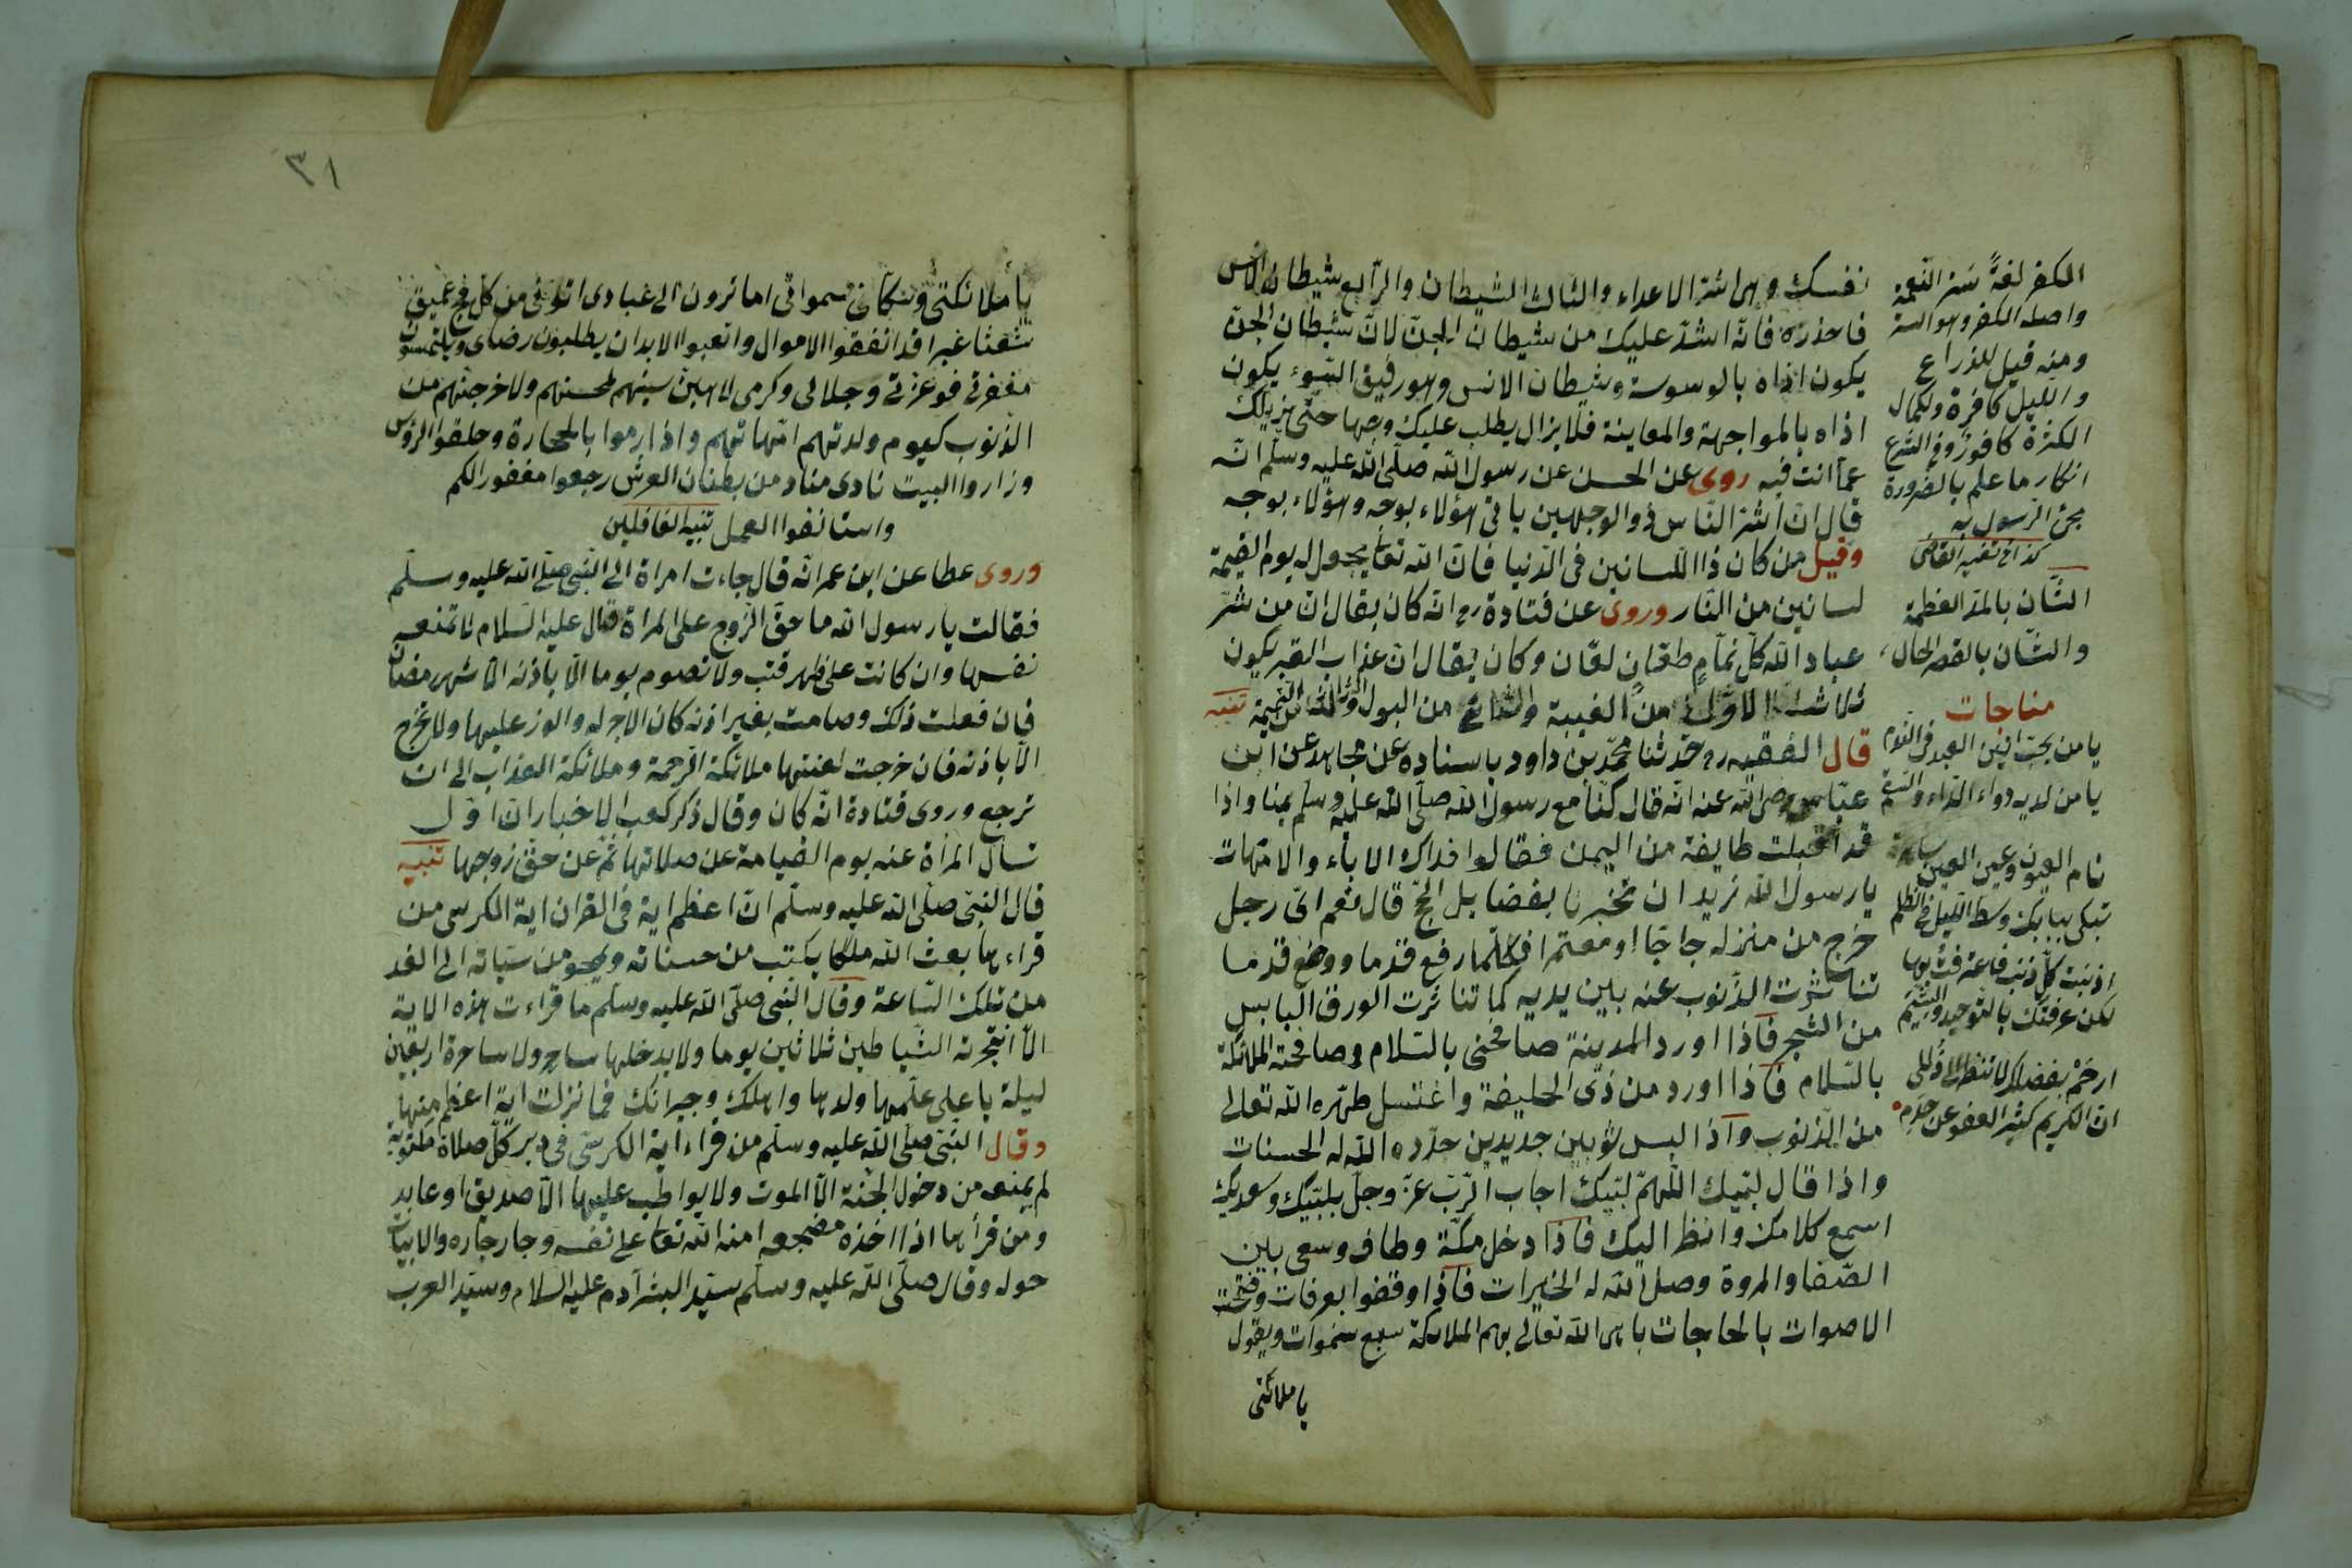 نفسك وهى اشد الاعداء والثالث الشيطان والرابع شيطان الانس
فاحذره فانه اشد عليك من شيطان الجن لان شيطان الجن
يكون اذاه بالوسوسة وشيطان الانس وهو رفيق السوء يكون
اذاه بالمواجهة والمعاينة فلا يزال يطلب عليك وجها حتى يزيلك
عما انت فيه روى عن الحسن عن رسول الله صلى الله عليه وسلم انه
قال ان اشر الناس ذو الوجهين ياتى هؤلاء بوجه وهؤلاء بوجه
وقيل من كان ذا اللسانين فى الدنيا فان الله تعا يجعل له يوم القيمة
لسانين من النار وروى عن قتادة رح انه كان يقال ان من شر
عباد الله كل نمام طعان لعان وكان يقال ان عذاب القبر يكون
ثلاثة الاول من الغيبة والثانى من البول والثالث من النميمة تنبيه
قال الفقيه رح حدثنا محمد بن داود باسناده عن مجاهد عن ابن
عباس رضى الله عنه انه قال كنا مع رسول الله صلى الله عليه وسلم بمنا واذا
قد اقبلت طايفة من اليمن فقالوا فداك الاباء والامهات
يا رسول الله نريد ان تخبرنا بفضايل الحج قال نعم اى رجل
خرج من منزله حاجا او معتمرا فكلما رفع قدما ووضع قدما
تناثرت الذنوب عنه بين يديه كما تناثرت الورق اليابس
من الشجر فاذا اورد المدينة صافحنى بالسلام وصافحته الملائكة
بالسلام فاذا اورد من ذى الحليفة واغتسل طهره الله تعالى
من الذنوب واذا لبس ثوبين جديدين جدده الله له الحسنات
واذا قال لبيك اللهم لبيك اجاب الرب عز وجل بلبيك وسعديك
اسمع كلامك وانظر اليك فاذا دخل مكة وطاف وسعى بين
الصفا والمروة وصل الله له الخيرات فاذا وقفوا بعرفات وضجت
الاصوات بالحاجات باهى الله تعالى بهم الملائكة سبع سموات ويقول
يا ملائكتى
الكفر لغة ستر النعمة
واصله الكفر وهو الستر
ومنه قيل للزراع
والليل كافرة ولكمال
الكثرة كافور وفى الشرع
انكار ما علم بالضرورة
مجئ الرسول به
كذا فى تفسير القاضى
الشان بالمد العظمة
والشان بالقصر الحال
مناجات
يا من يحب انين العبد فى الظلم
يا من لديه دواء الداء والسقم
نام العيون وعين العين ساهرة
تبكى ببابك وسط الليل فى الظلم
اذنبت كل ذنب
لكن عرفتك بالتوحيد والشيم
ارحم بفضلك لا تنظر الى ذللى
ان الكريم كثير العفو عن خدم
٣١
يا ملائكتى وسكان سمواتى اما ترون الى عبادى اتونى من كل فج عميق
شعثا غبرا قد انفقوا الاموال واتعبوا الابدان يطلبون رضاى ويلتمسون
مغفرتى فوعزتى وجلالى وكرمى لاهبن سيئهم لمحسنهم ولاخرجنهم من
الذنوب كيوم ولدتهم امهاتهم واذا رموا بالحجارة وحلقوا الرؤس
وزاروا البيت نادى مناد من بطنان العرش رجعوا مغفورا لكم
واستانفوا العمل تنبيه الغافلين
وروى عطا عن ابن عمر انه قال جاءت امراة الى النبى صلى الله عليه وسلم
فقالت يا رسول الله ما حق الزوج على المراة قال عليه السلام لا تمنعه
نفسها وان كانت على ظهر قتب ولا تصوم يوما الا باذنه الا شهر رمضان
فان فعلت ذلك وصامت بغير اذنه كان الاجر له والوزر عليها ولا تخرج
الا باذنه فان خرجت لعنتها ملائكة الرحمة وملائكة العذاب الى ان
ترجع وروى قتادة انه كان وقال ذكر كعب الاخبار ان اول
تسأل المراة عنه يوم القيامة عن صلاتها ثم عن حق زوجها تنبيه
قال النبى صلى الله عليه وسلم ان اعظم اية فى القران اية الكرسى من
قراءها بعث الله ملكا يكتب من حسناته ويمحو من سيأته الى الغد
من تلك الساعة وقال النبى صلى الله عليه وسلم ما قراءت هذه الاية
الا اهتجرته الشياطين ثلاثين يوما ولا يدخلها ساحر ولا ساحرة اربعين
ليلة يا على علمها ولدها واهلك وجيرانك فما نزلت اية اعظم منها
وقال النبى صلى الله عليه وسلم من قراء اية الكرسى فى دبر كل صلاة مكتوبة
لم يمنعه من دخول الجنة الا الموت ولا يواظب عليها الا صديق او عابد
ومن قرأها اذا اخذه مضجعه امنه الله تعا على نفسه وجار جاره والابيات
حوله وقال صلى الله عليه وسلم سيد البشر آدم عليه السلام وسيد العرب